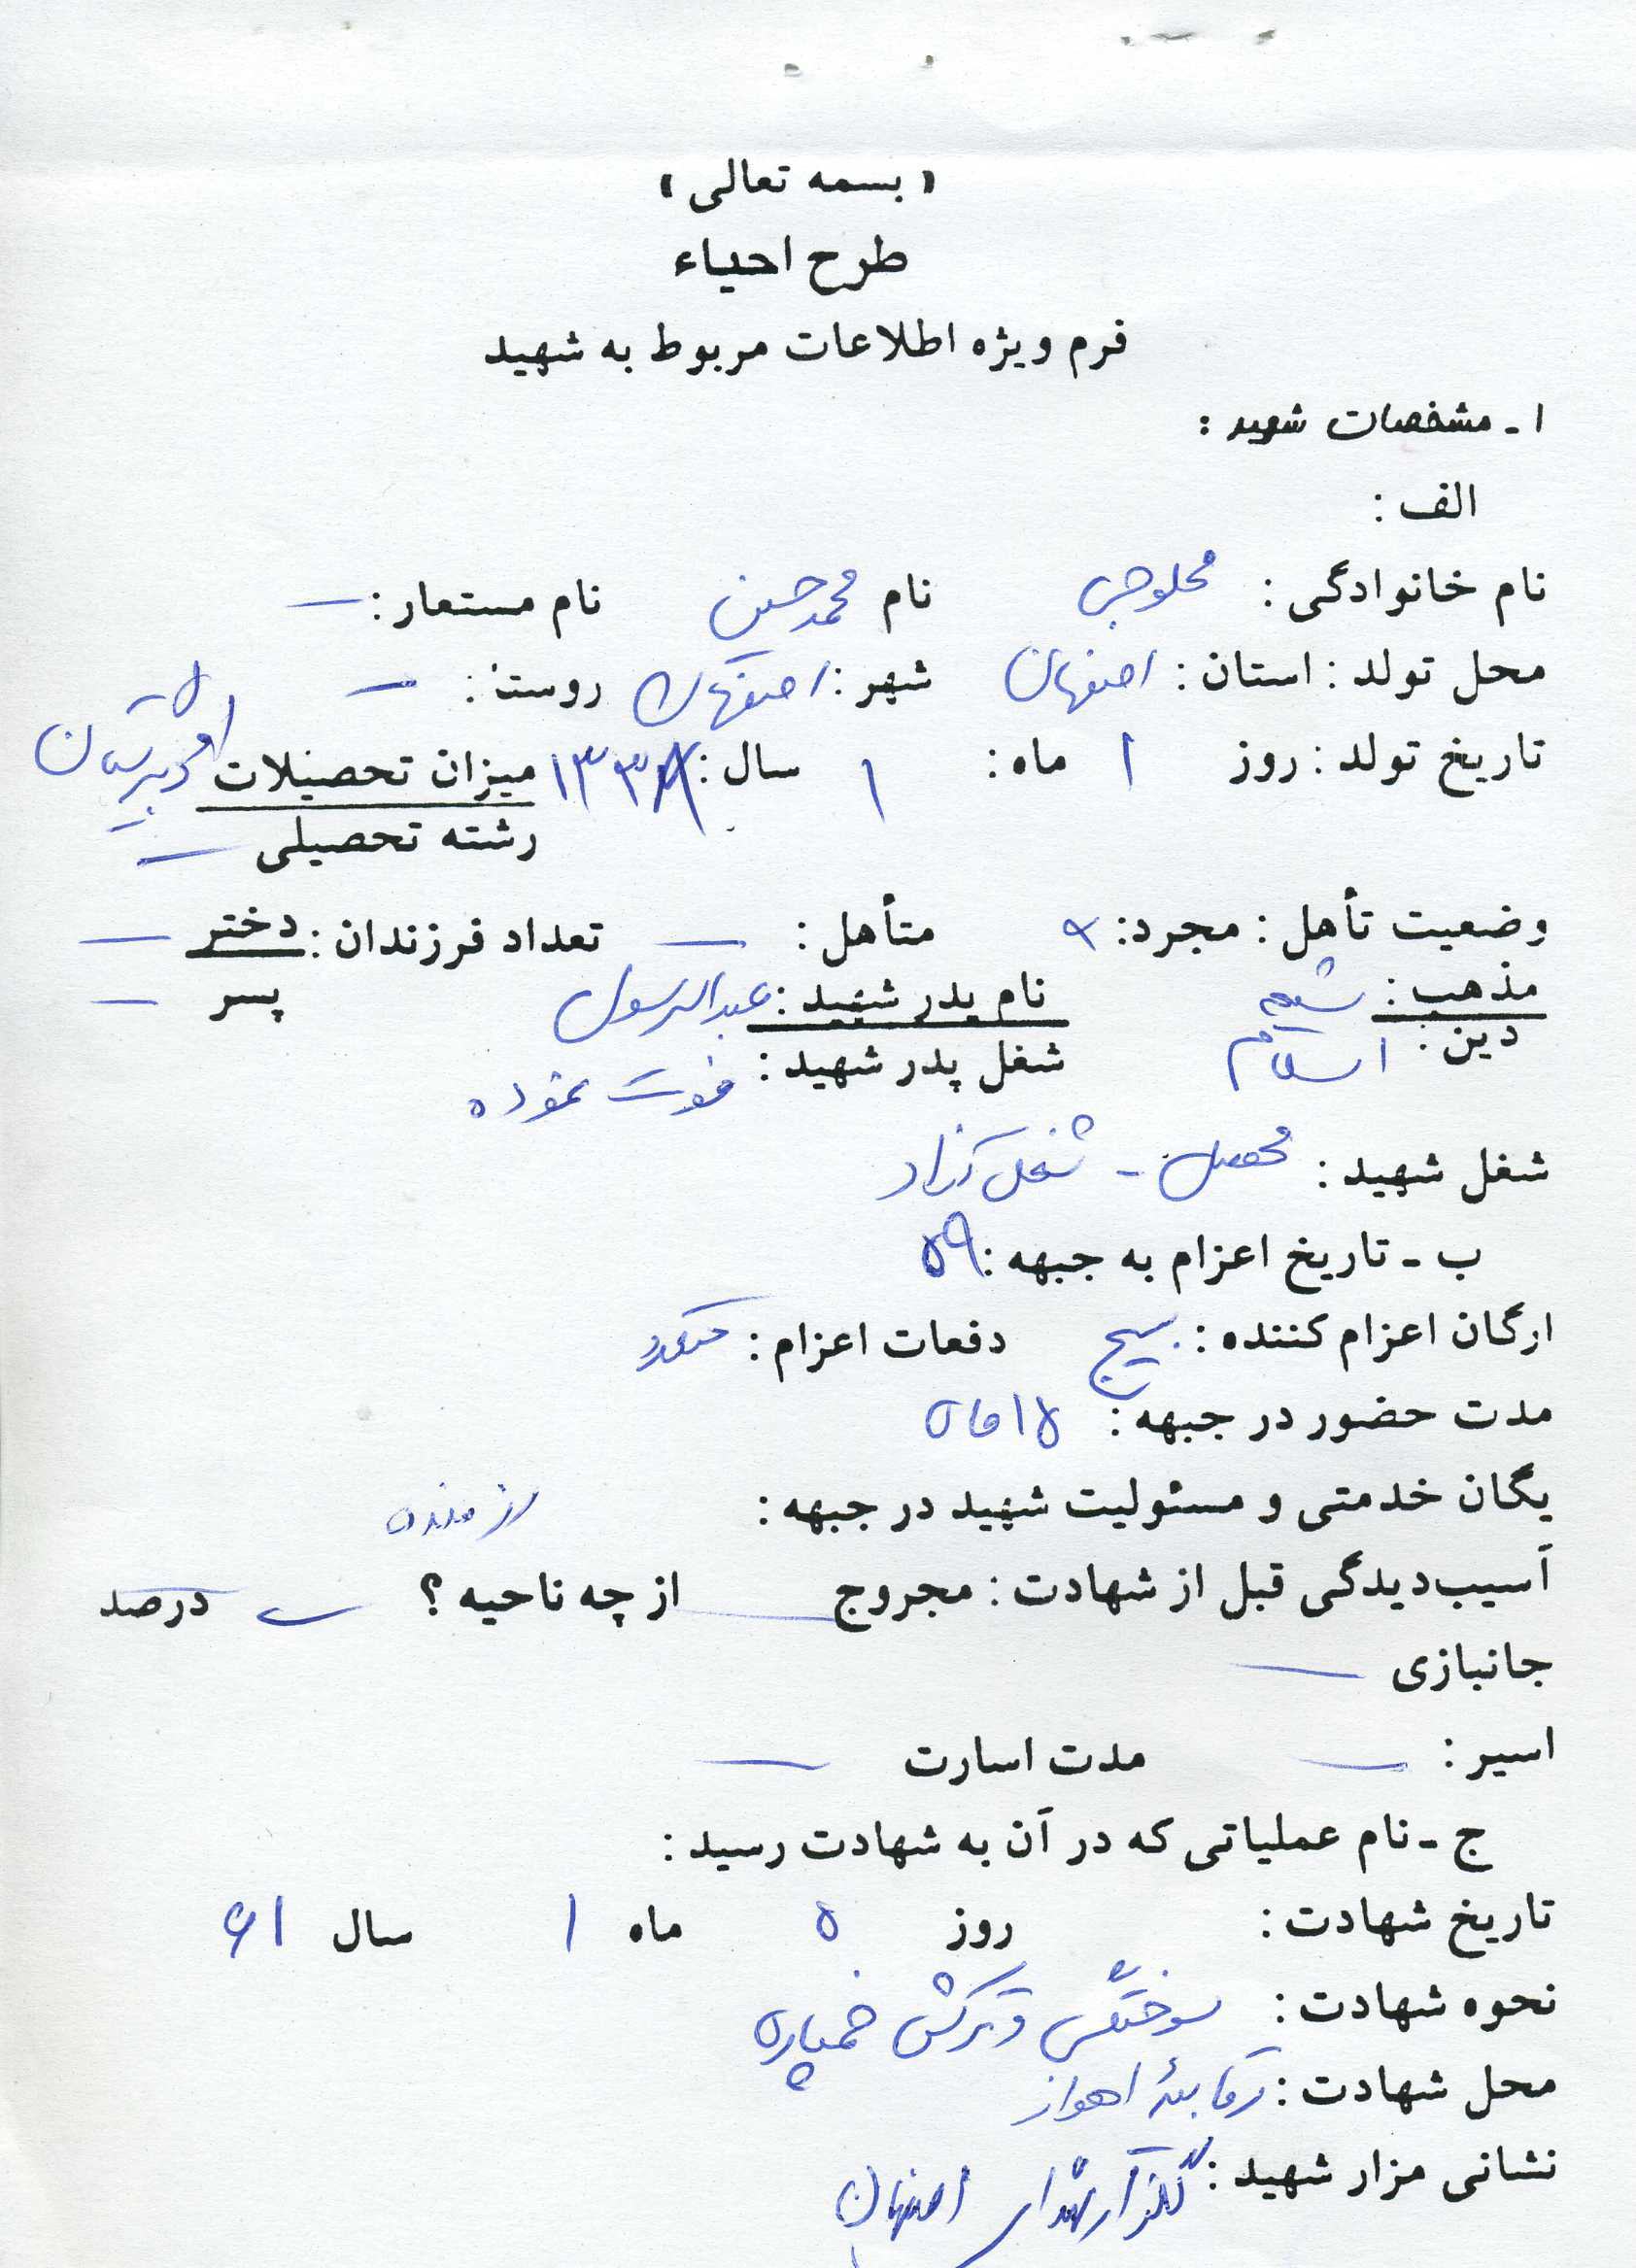 « بسمه تعالی »
طرح احیاء
فرم ویژه اطلاعات مربوط به شهید
۱ـ مشخصات شهید :
الف :
نام خانوادگی : محلوجی نام محمدحسین نام مستعار : —
محل تولد : استان : اصفهان شهر : اصفهان روستا : —
تاریخ تولد : روز ۱ ماه : ۱ سال : میزان تحصیلات دبیرستان
رشته تحصیلی —
وضعیت تأهل : مجرد : × متأهل : — تعداد فرزندان : دختر —
پسر —
مذهب : شیعه نام پدر شهید : عبدالرسول
دین : اسلام شغل پدر شهید : فوت نموده
شغل شهید : محصل - شغل آزاد
ب ـ تاریخ اعزام به جبهه : ۵۹
ارگان اعزام کننده : بسیج دفعات اعزام : متعدد
مدت حضور در جبهه : ۱۵ ماه
یگان خدمتی و مسئولیت شهید در جبهه : رزمنده
آسیب‌دیدگی قبل از شهادت : مجروح — از چه ناحیه ؟ — درصد
جانبازی —
اسیر : — مدت اسارت —
ج ـ نام عملیاتی که در آن به شهادت رسید :
تاریخ شهادت : روز ۵ ماه ۱ سال ۶۱
نحوه شهادت : سوختگی و ترکش خمپاره
محل شهادت : رقابیه اهواز
نشانی مزار شهید : گلزار شهدای اصفهان